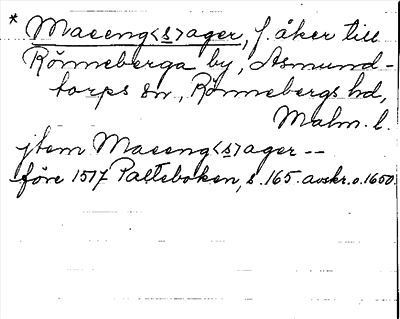 * Maeeng<s>ager, f. åker till
Rönneberga by, Asmund-
torps sn., Rönnebergs hd,
Malm. l.
jtem Maeeng<s>ager --
före 1517 Palteboken, s. 165. avskr. o. 1650.